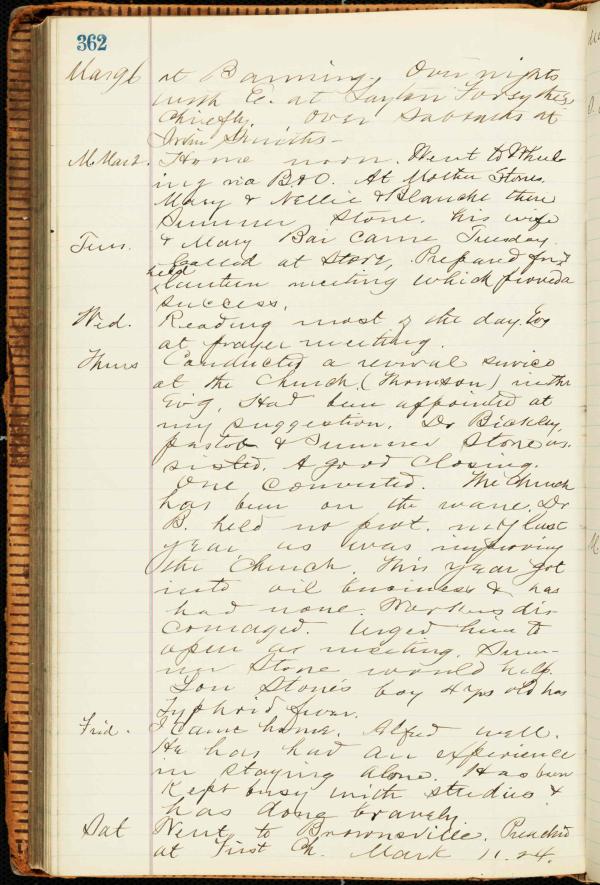 362
Mar 96 at Banning. Over nights
with E. at Saylor Forsythes
chiefly. Over Sabbaths at
Irvin Smiths -
M. Mar 2. Home noon. Went to Wheel-
ing via B&O. At Mother Stones.
Mary & Nellie & Blanche there
Sumner Stone, his wife
& Mary Bai came Tuesday.
Tues. Called at Store, Prepared for &
held
lantern meeting which proved a
success.
Wed. Reading most of the day. Evg
at prayer meeting.
Thurs Conducted a revival service
at the Church, (Thomson) in the
Ev'g. Had been appointed at
my suggestion. Dr Bickley,
pastor & Sumner Stone as-
sisted. A good closing.
One converted. The Church
has been on the wane. Dr
B. held no prot. mtg last
year as was improving
the Church. This year got
into oil business & has
had none. Workers dis
couraged. Urged him to
open a meeting. Sum-
ner Stone would help.
Lon Stone's boy 4 yrs old has
Typhoid fever.
Frid. I came home. Alfred well.
He has had an experience
in staying alone. Has been
Kept busy with studies &
has done bravely.
Sat Went to Brownsville. Preached
at First Ch. Mark 11.24.